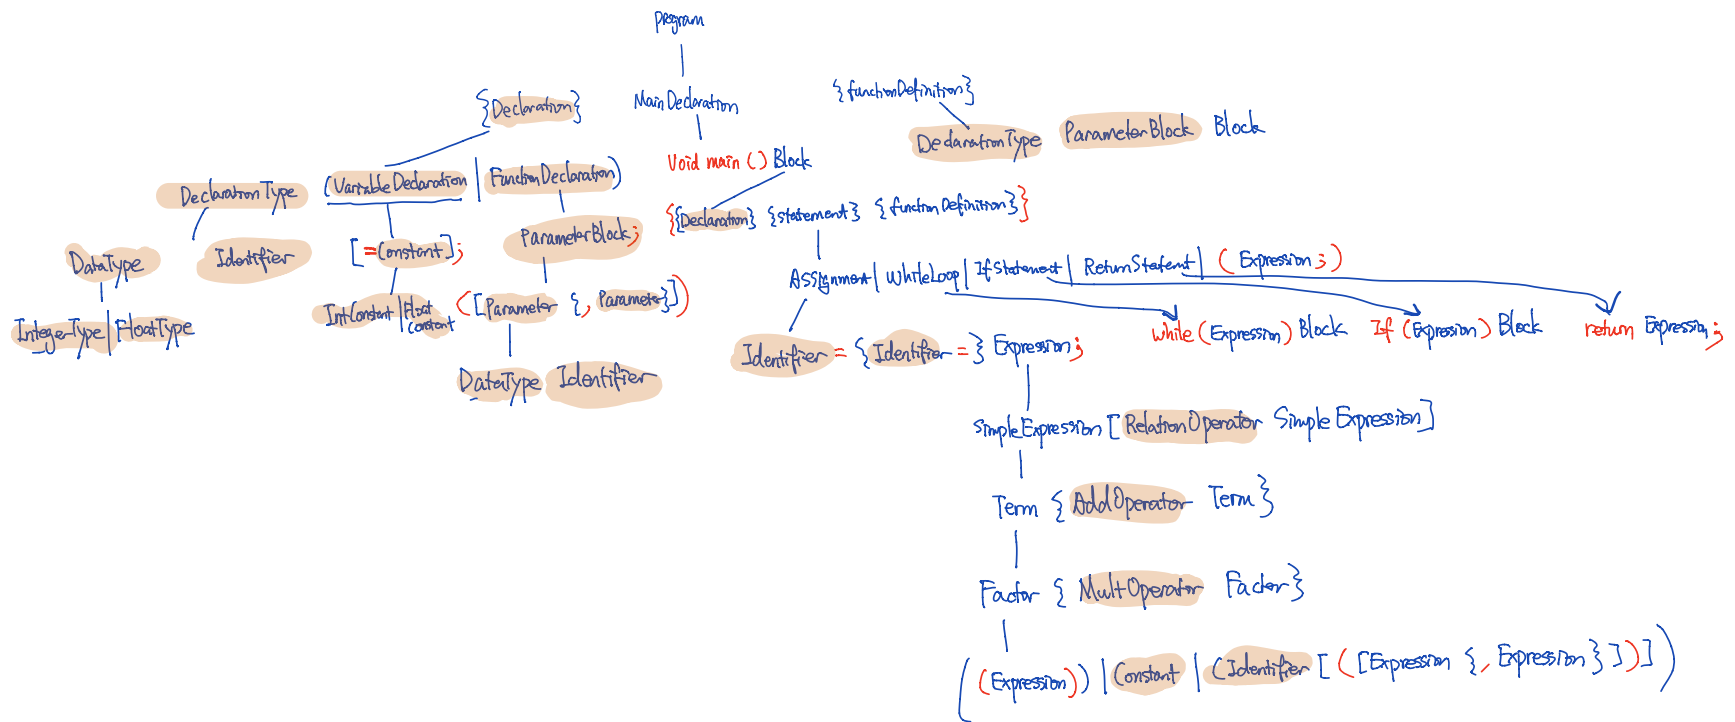 Program
{Declaration}
MainDeclaration
{functionDefinition}
DeclarationType ParameterBlock Block
Void main () Block
DeclarationType (VariableDeclaration | FunctionDeclaration)
{{Declaration} {statement} {functionDefinition}}
DataType Identifier
[=Constant];
ParameterBlock;
Assignment | WhileLoop | IfStatement | ReturnStatemt | (Expression;)
IntegerType | FloatType
IntConstant | Float Constant
([Parameter {, Parameter}])
while (Expression) Block
If (Expression) Block
return Expression;
Identifier = {Identifier =} Expression;
DataType Identifier
SimpleExpression [RelationOperator SimpleExpression]
Term {AddOperator Term}
Factor {MultOperator Factor}
((Expression)) | Constant | (Identifier [([Expression {, Expression}])])